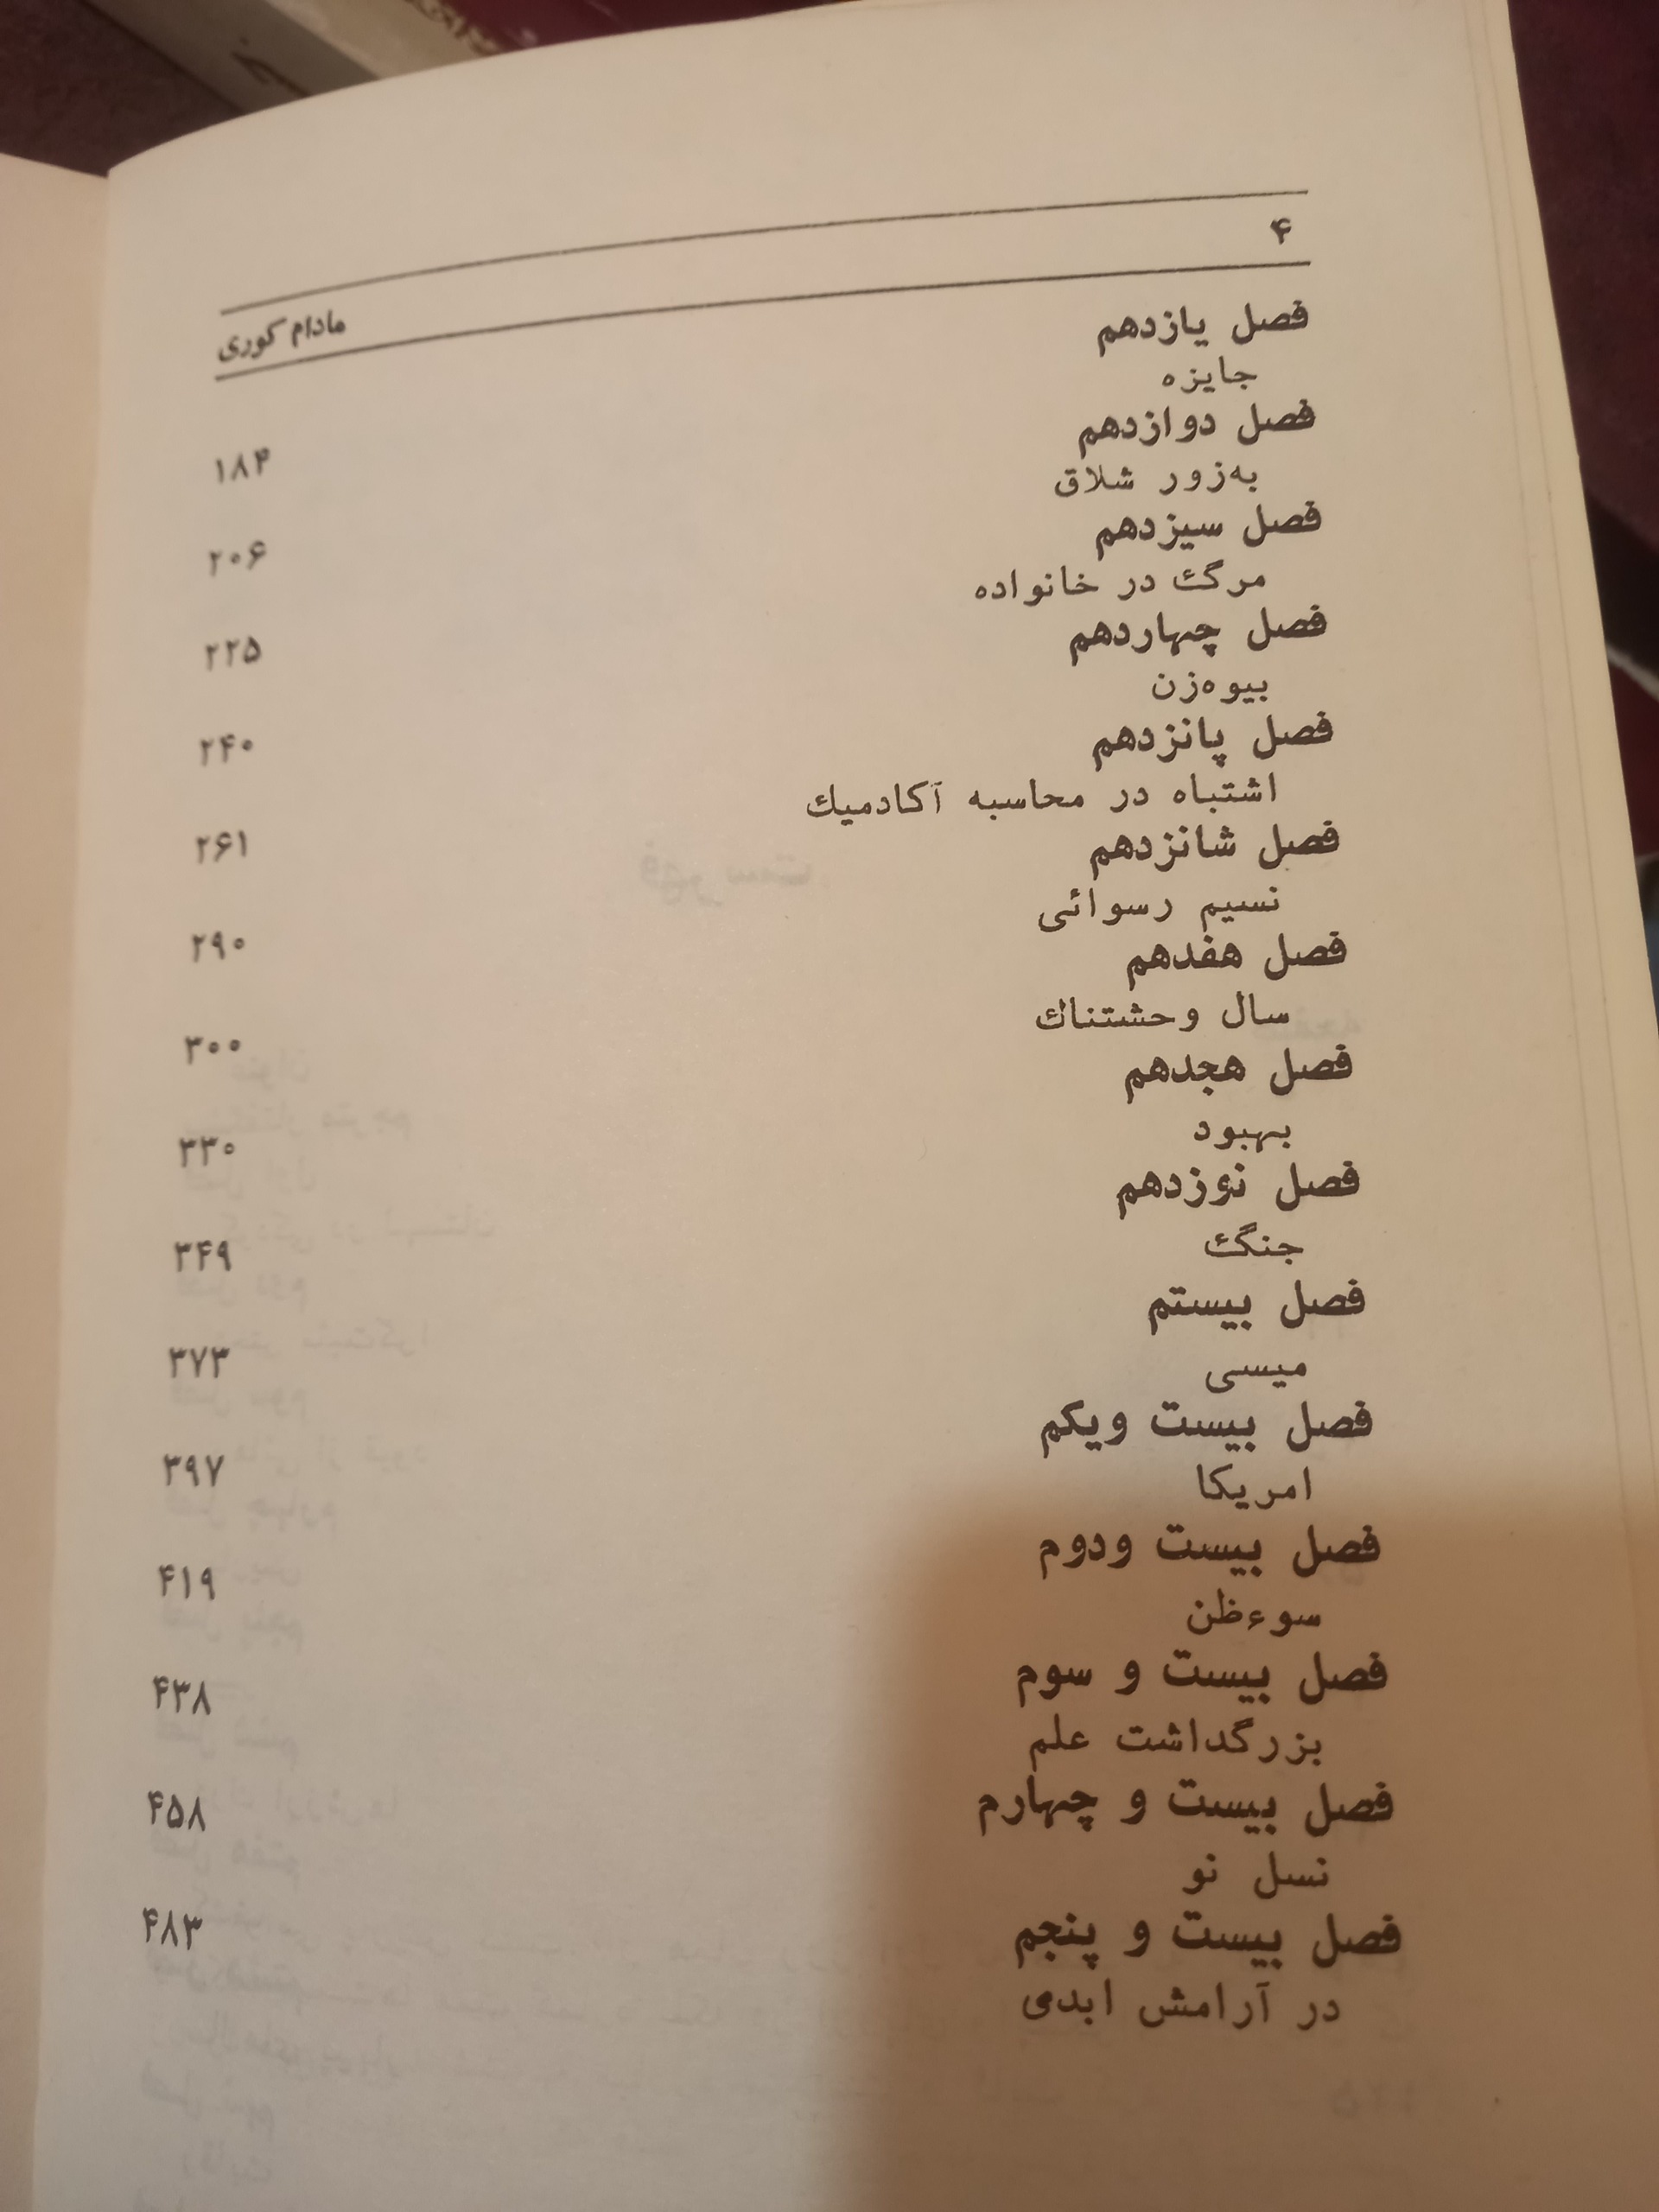 ۴
مادام کوری
فصل یازدهم
جایزه ۱۸۴
فصل دوازدهم
به‌زور شلاق ۲۰۶
فصل سیزدهم
مرگ در خانواده ۲۲۵
فصل چهاردهم
بیوه‌زن ۲۴۰
فصل پانزدهم
اشتباه در محاسبه آکادمیك ۲۶۱
فصل شانزدهم
نسیم رسوائی ۲۹۰
فصل هفدهم
سال وحشتناك ۳۰۰
فصل هجدهم
بهبود ۳۳۰
فصل نوزدهم
جنگ ۳۴۹
فصل بیستم
میسی ۳۷۳
فصل بیست ویکم
امریکا ۳۹۷
فصل بیست ودوم
سوءظن ۴۱۹
فصل بیست و سوم
بزرگداشت علم ۴۳۸
فصل بیست و چهارم
نسل نو ۴۵۸
فصل بیست و پنجم
در آرامش ابدی ۴۸۳